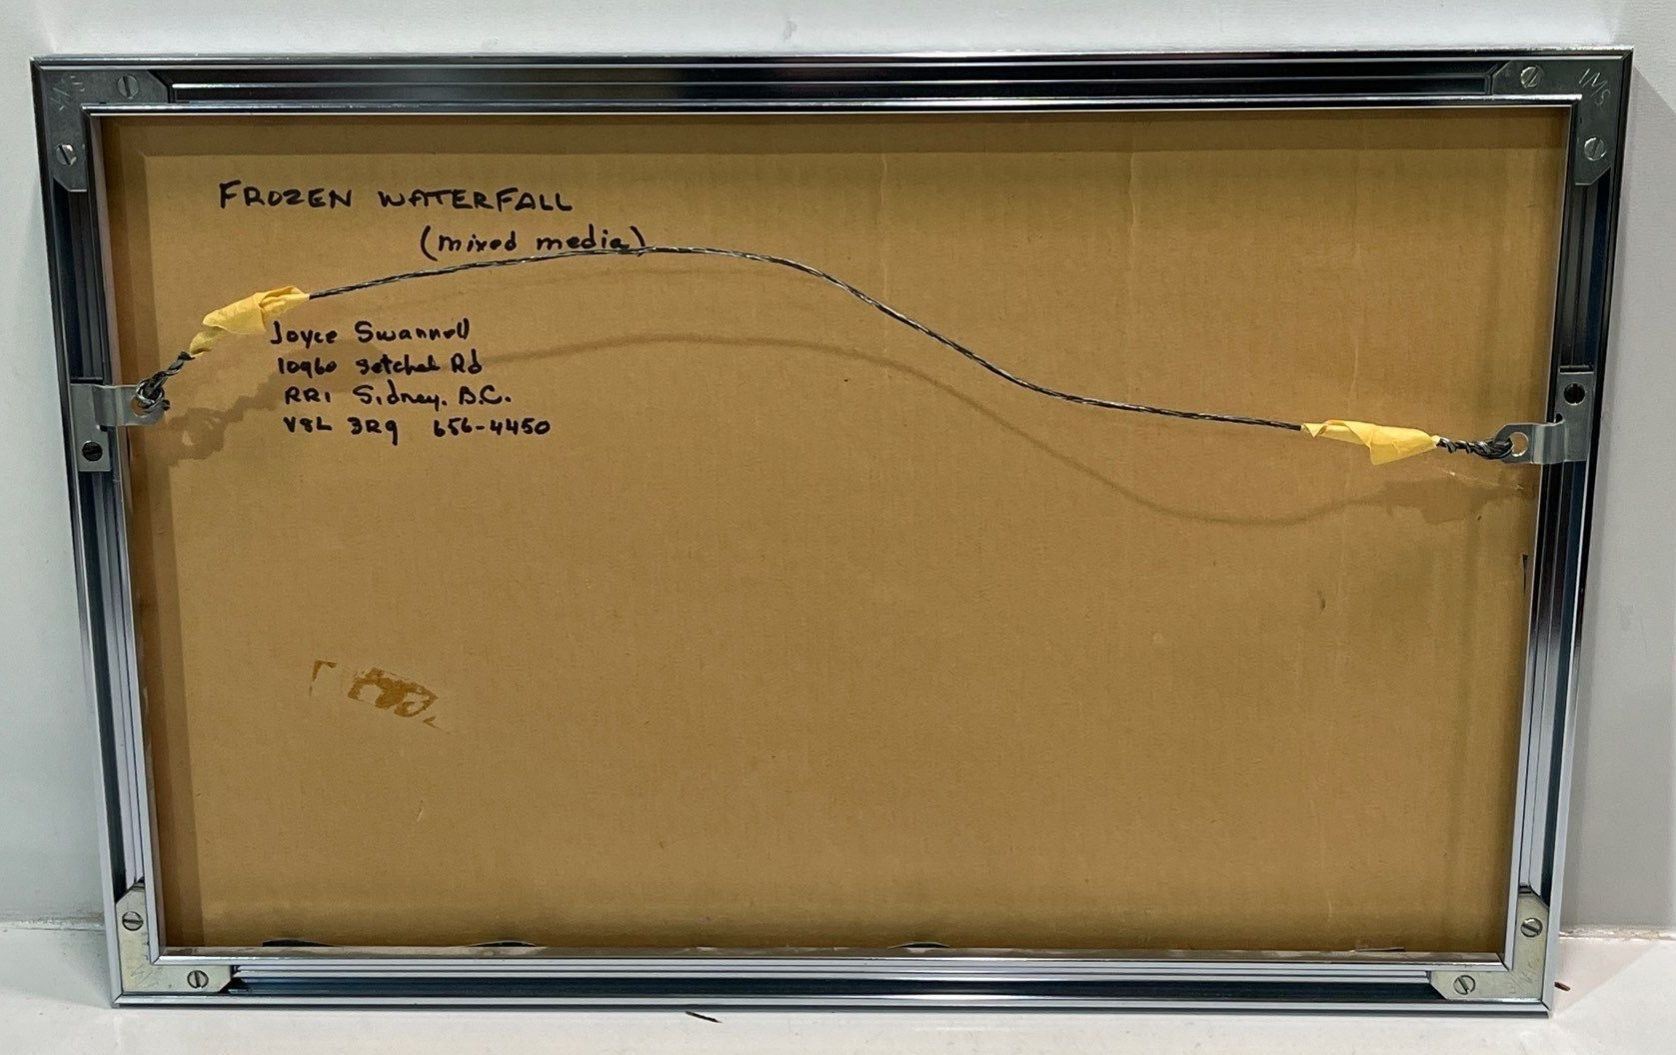 FROZEN WATERFALL
(mixed media)
Joyce Swannell
10960 Setchel Rd
RR1 Sidney. B.C.
V8L 3R9 656-4450